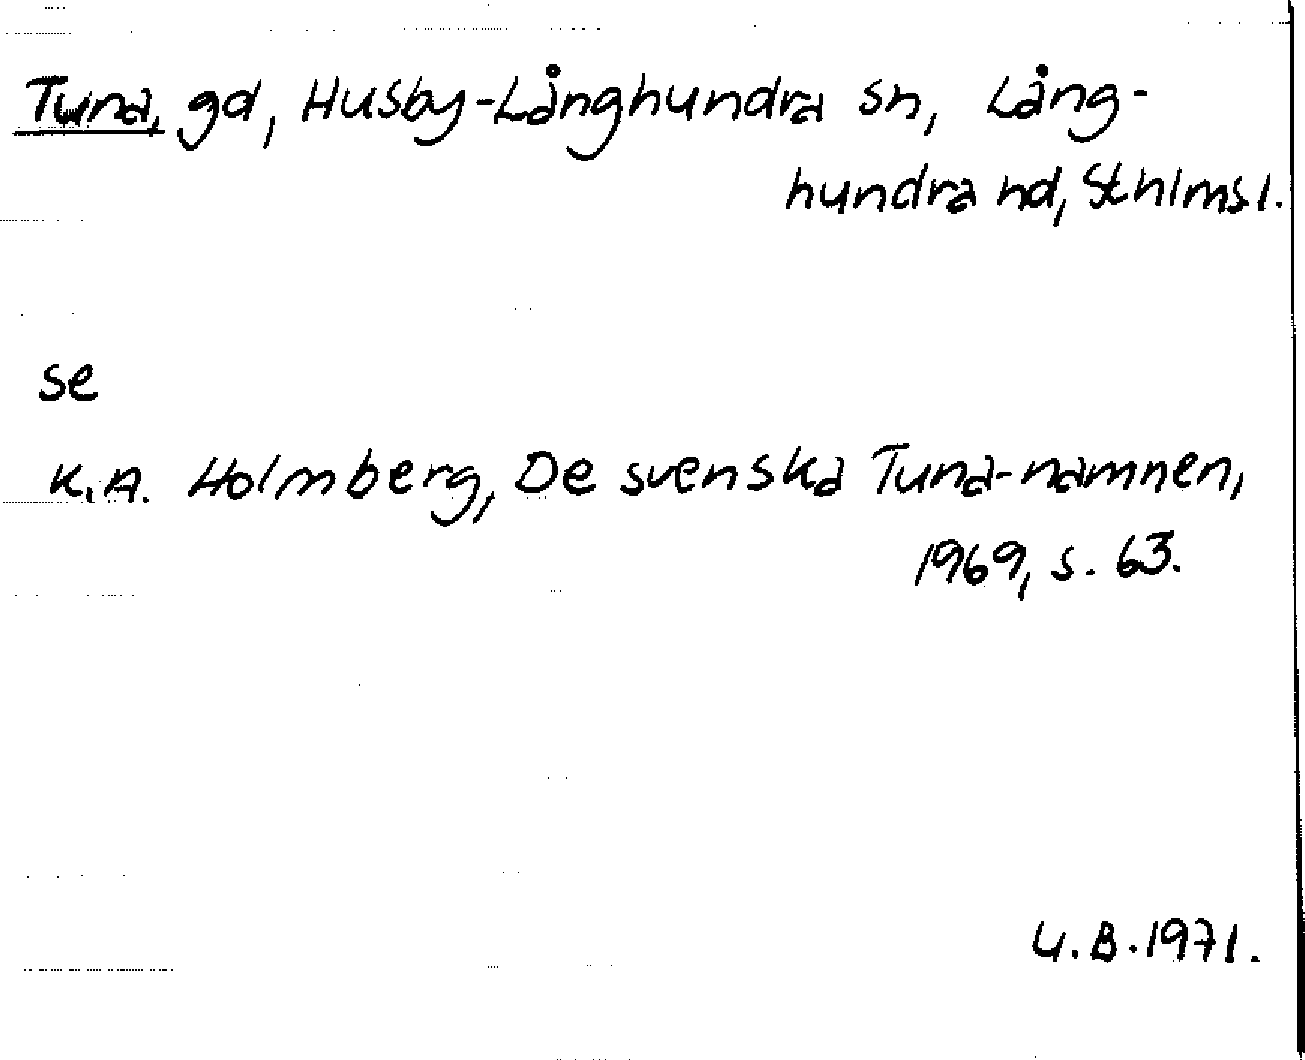 Tuna, gd, Husby-Långhundra sn, Lång-
hundra hd, Sthlms l.
se
K.A. Holmberg, De svenska Tuna-namnen,
1969, s. 63.
U.B.1971.